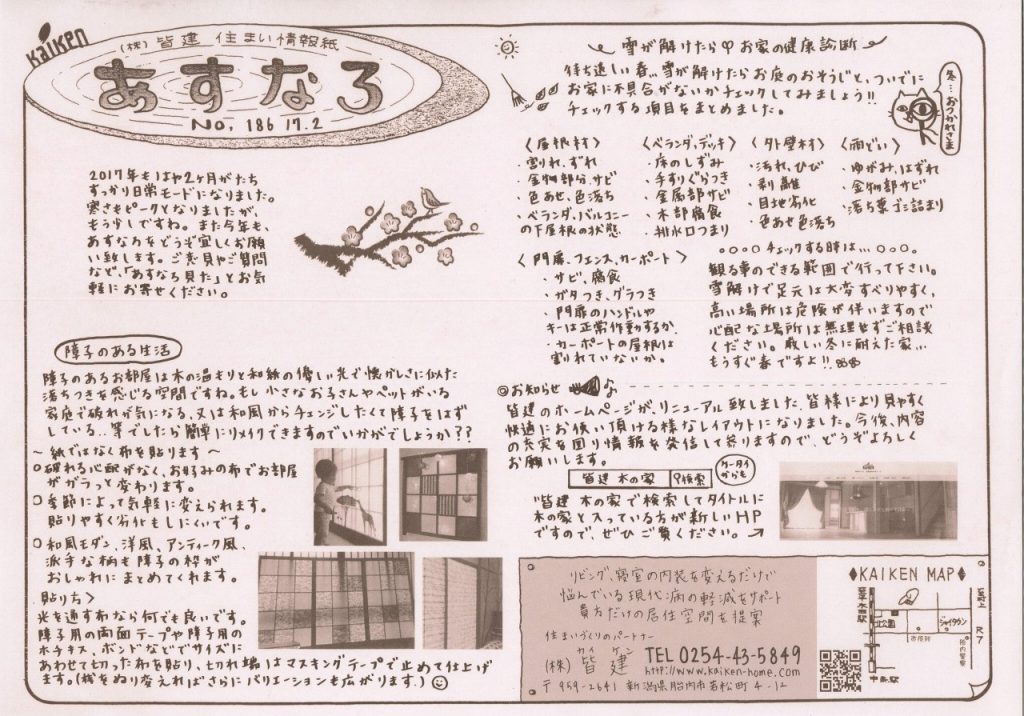 Kaiken
(株) 皆建 住まい情報紙
あすなろ
No, 186 17.2
2017年もはや2ヶ月がたち
すっかり日常モードになりました。
寒さもピークとなりましたが、
もう少しですね。また今年も、
あすなろをどうぞ宜しくお願
い致します。ご意見やご質問
など、「あすなろ見た」とお気
軽にお寄せください。
障子のある生活
障子のあるお部屋は木の温もりと和紙の優しい光で懐かしさに似た
落ちつきを感じる空間ですね。もし小さなお子さんやペットがいる
家庭で破れが気になる、又は和風からチェンジしたくて障子をはず
している..等でしたら簡単にリメイクできますのでいかがでしょうか??
~ 紙ではなく布を貼ります ~
○破れる心配がなく、お好みの布でお部屋
がガラっと変わります。
○季節によって気軽に変えられます。
貼りやすく劣化もしにくいです。
○和風モダン、洋風、アンティーク風、
派手な柄も障子の枠が
おしゃれにまとめてくれます。
貼り方>
光を通す布なら何でも良いです。
障子用の両面テープや障子用の
ホチキス、ボンドなどでサイズに
あわせて切った布を貼り、切れ端はマスキングテープで止めて仕上げ
ます。(桟をぬり変えればさらにバリエーションも広がります。)
雪が解けたら お家の健康診断
待ち遠しい春...雪が解けたらお庭のおそうじと、ついでに
お家に不具合がないかチェックしてみましょう!!
チェックする項目をまとめました。
冬…おつかれさま
〈屋根材〉
・割れ、ずれ
・金物部分、サビ
・色あせ、色落ち
・ベランダ、バルコニー
の下屋根の状態
〈ベランダ、デッキ〉
・床のしずみ
・手すりぐらつき
・金属部サビ
・木部腐食
・排水口つまり
〈外壁材〉
・汚れ、ひび
・剥離
・目地劣化
・色あせ色落ち
〈雨どい〉
・ゆがみ、はずれ
・金物部サビ
・落ち葉ゴミ詰まり
〈門扉、フェンス、カーポート〉
・サビ、腐食
・ガタつき、グラつき
・門扉のハンドルや
キーは正常作動するか、
・カーポートの屋根は
割れていないか。
○○○○チェックする時は...○○○。
観る事のできる範囲で行って下さい。
雪解けで足元は大変すべりやすく、
高い場所は危険が伴いますので
心配な場所は無理せずご相談
ください。厳しい冬に耐えた家...
もうすぐ春ですよ!!
◎お知らせ
皆建のホームページが、リニューアル致しました。皆様により見やすく
快適にお使い頂ける様なレイアウトになりました。今後、内容
の充実を図り情報を発信して参りますので、どうぞよろしく
お願いします。
皆建 木の家 検索
ケータイからも
"皆建 木の家で検索してタイトルに
木の家と入っている方が新しいHP
ですので、ぜひご覧ください。→
リビング、寝室の内装を変えるだけで
悩んでいる現代病の軽減をサポート
貴方だけの居住空間を提案
住まいづくりのパートナー
カイ ケン
(株) 皆建 TEL 0254-43-5849
http://www.kaiken-home.com
〒959-2641 新潟県胎内市若松町4-12
◆KAIKEN MAP◆
公園
ジャイタウン
市役所
中条駅